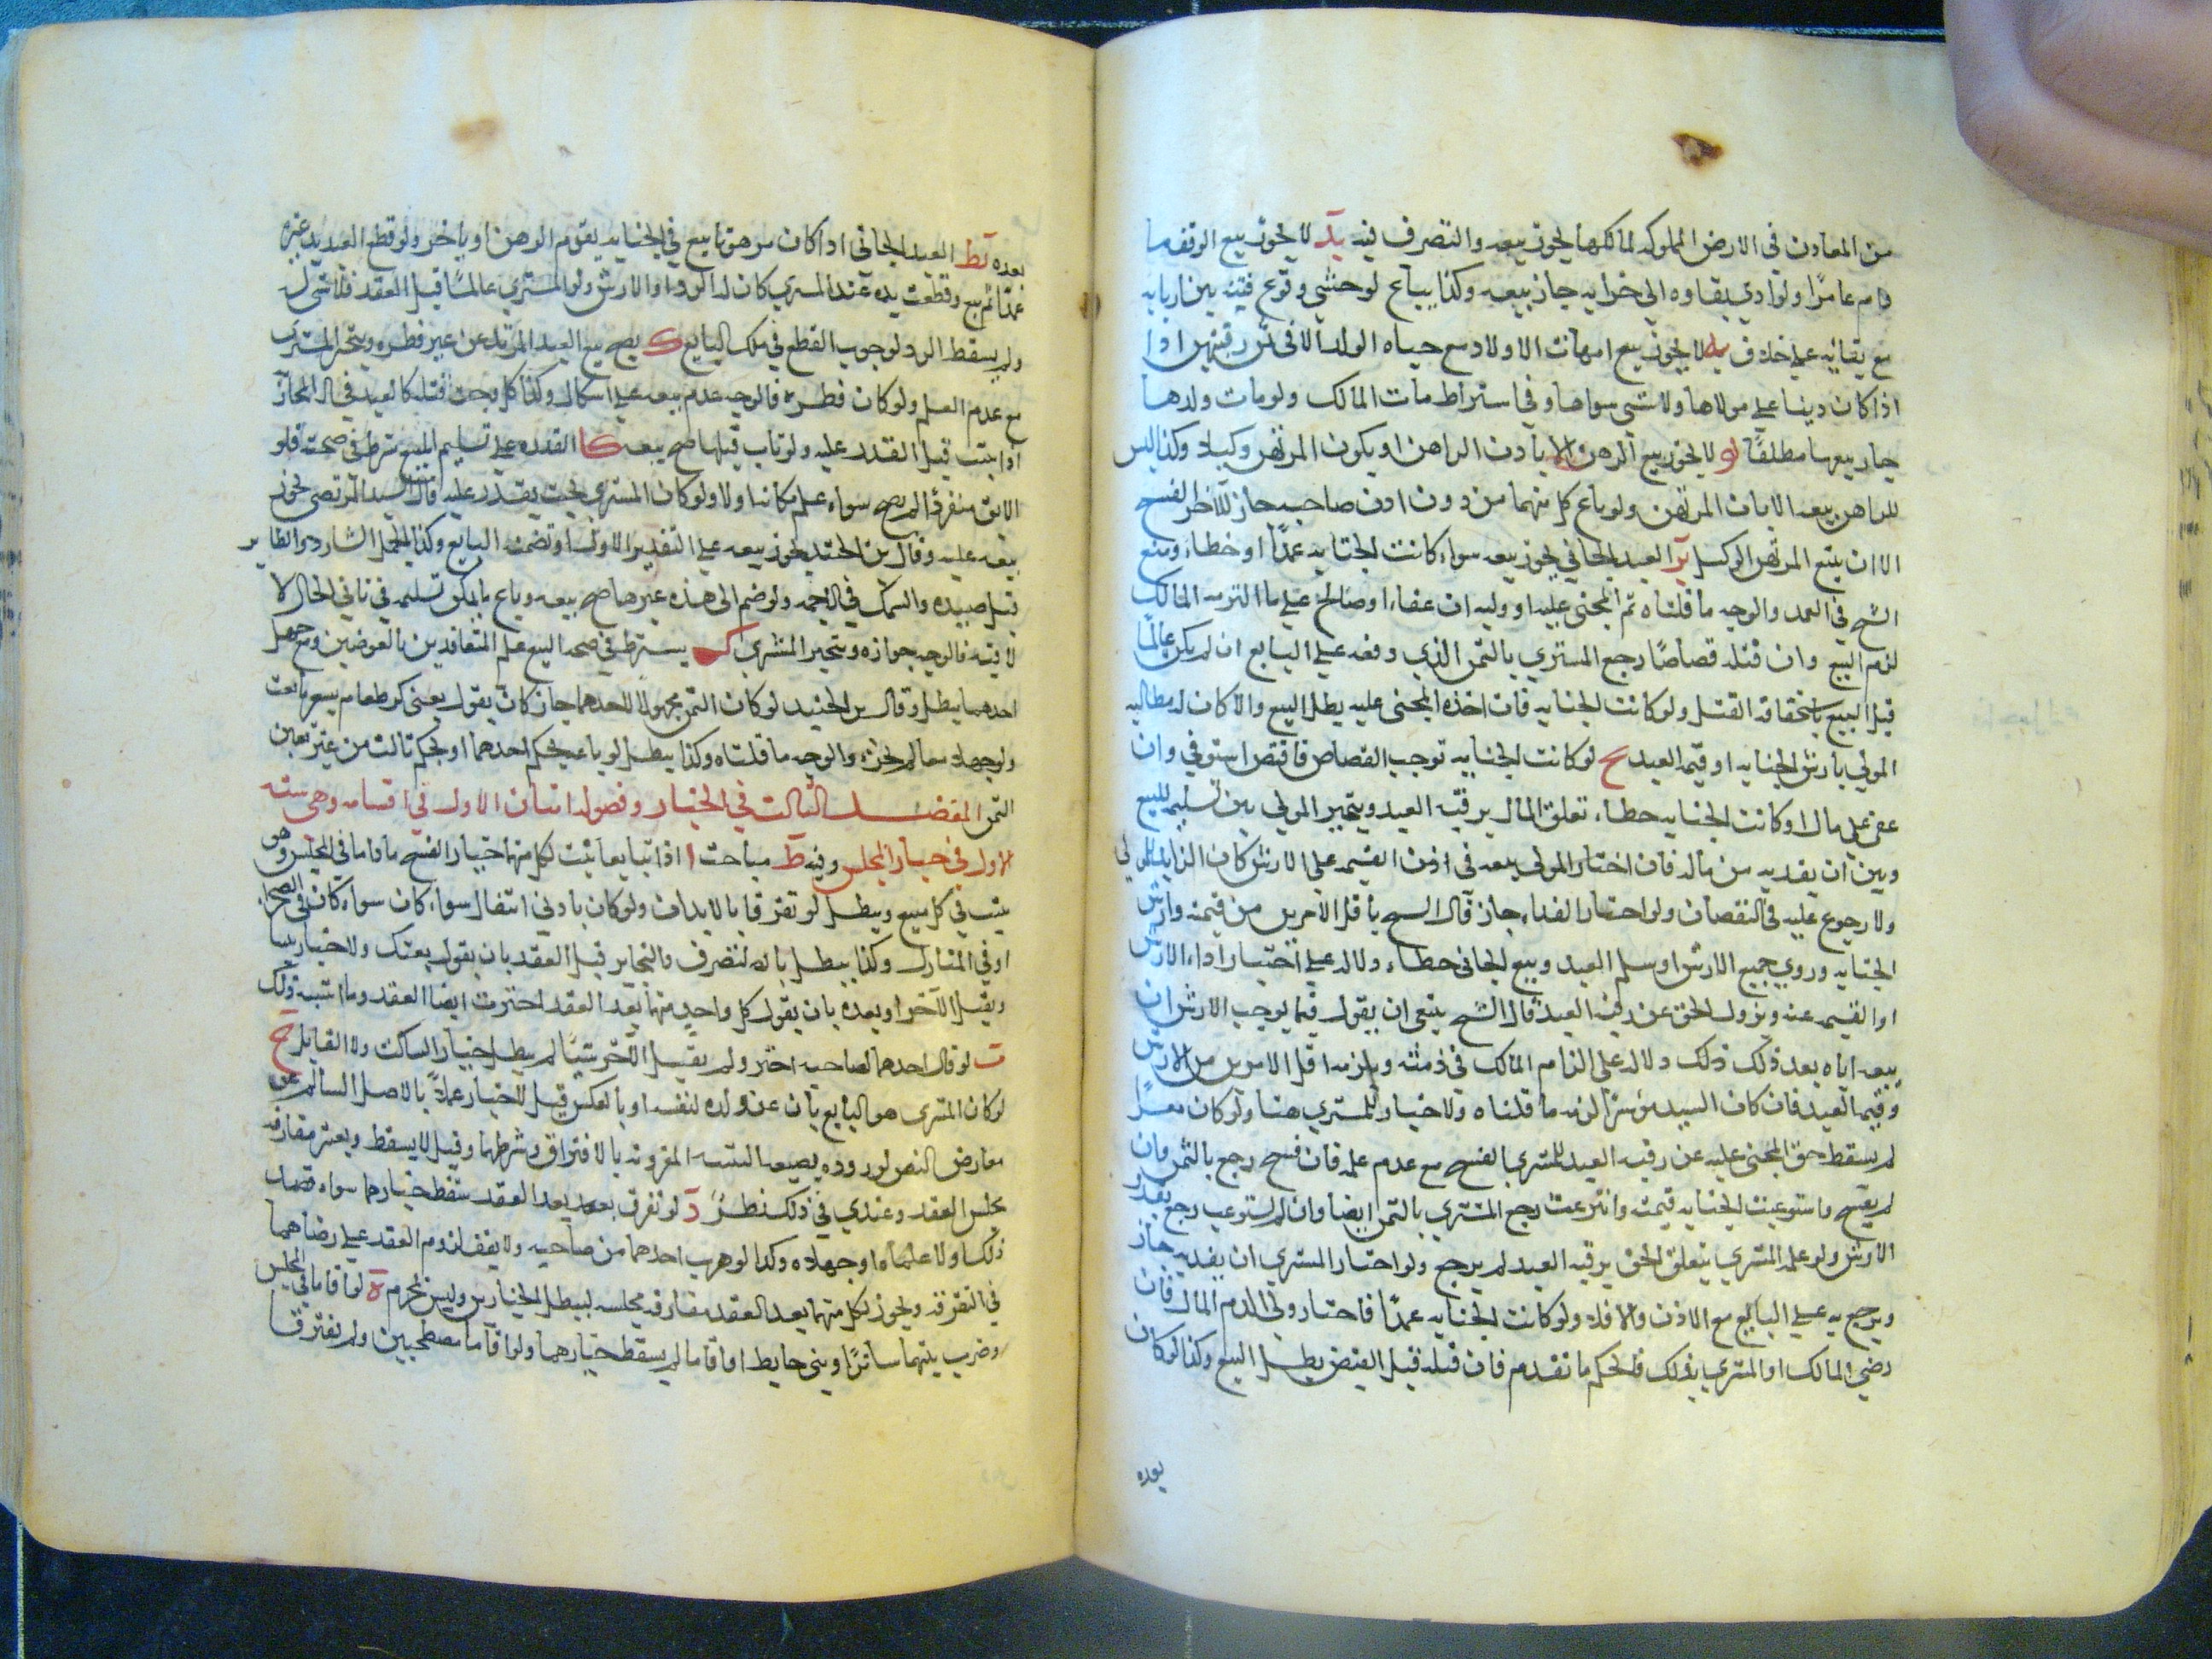 من المعادن في الارض المملوكه لمالكها يجوز بيعه والتصرف فيه يد لا يجوز بيع الوقف ما
دام عامرًا ولو ادي بقاوه الي خرابه جاز بيعه وكذا يباع لو خشي وقوع فتنه بين اربابه
مع بقائه علي خلاف يه لا يجوز بيع امهات الاولاد مع حياه الولد الا في ثمن رقبتهن اذا
اذا كان دينا علي مولاها ولا شي سواها وفي اشتراط مات المالك ولو مات ولدها
جاز بيعها مطلقًا يو لا يجوز بيع الرهن الا باذن الراهن او يكون المرتهن وكيلا وكذا ليس
للراهن بيعه الا باذن المرتهن ولو باع كل منهما من دون اذن صاحبه جاز للآخر الفسخ
الا ان يبيع المرتهن الوكيل يز العبد الجاني يجوز بيعه سواء كانت الجنايه عمدًا او خطاء ومنع
الشيخ في العمد والوجه ما قلناه ثم المجني عليه او وليه ان عفاء او صالح علي ما التزمه المالك
لزم البيع وان قتله قصاصًا رجع المشتري بالثمن الذي دفعه علي البايع ان لم يكن عالمًا
قبل البيع باستحقاقه القتل ولو كانت الجنايه فان اخذه المجني عليه بطل البيع والا كان له مطالبه
المولي بارش الجنايه او قيمه العبد يح لو كانت الجنايه توجب القصاص فاقتص استوفي وان
عفي علي مال او كانت الجنايه خطاء تعلق المال برقبه العبد ويتخير المولي بين تسليمه للبيع
وبين ان يفديه من ماله فان اختار المولي بيعه في ازمن القيمه علي الارش كان الزايد للمولي
ولا رجوع عليه في النقصان ولو اختار الفداء جاز قال الشيخ باقل الامرين من قيمته وارش
الجنايه وروي جميع الارش او سلم العبد وبيع الجاني خطاء دلاله علي اختيار اداء الارش
او القيمه عنه ونزول الحق عن رقبه العبد قال الشيخ ينبغي ان يقول فيما يوجب الارش ان
بيعه اياه بعد ذلك ذلك دلاله علي التزام المالك في ذمته ويلزمه اقل الامرين من الارش
وقيمه العبد فان كان السيد موسرًا لزمه ما قلناه ولا خيار للمشتري هنا ولو كان معسرًا
لم يسقط حق المجني عليه عن رقبه العبد للمشتري بالفسخ مع عدم علمه فان فسخ رجع بالثمن وان
لم يفسخ واستوعبت الجنايه قيمته وانتزعت رجع المشتري بالثمن ايضا وان لم يستوعب رجع بقدر
الارش ولو علم المشتري بتعلق الحق برقبه العبد لم يرجع ولو اختار المشتري ان يفديه جاز
ويرجع به علي البايع مع الاذن والا فلا ولو كانت الجنايه عمدًا فاختار ولي الدم المال فان
رضي المالك او المشتري بذلك فالحكم ما تقدم فان قتله قبل القبض بطل البيع وكذا لو كان
بعده
بعده يط العبد الجاني اذا كان مرهونا بيع في الجنايه يقوم الرهن او تاخر ولو قطع العبد يد غيره
عمدًا ثم بيع وقطعت يده عند المشتري كان له الرد او الارش ولو المشتري عالمًا قبل العقد فلا شي له
ولم يسقط الرد لوجوب القطع في ملك البايع ك يصح بيع العبد المرتد عن غير فطره ويتخير المشتري
مع عدم العلم ولو كان فطره فالوجه عدم بيعه علي اشكال وكذا كل وجب قتله كالعبد في المحارب
اذا يتب قبل القدره عليه ولو تاب قبلها صح بيعه كا القدره علي تسليم المبيع شرط في صحته فلو
الابق منفردًا لم يصح سواء علم مكانه اولا ولو كان المشتري بحيث يقدر عليه قال السيد المرتضي يجوز
بيعه عليه وقال بن الجنيد يجوز بيعه علي التقدير الاول او تضمنه البايع وكذا الجمل الشارد والطاير
قبل صيده والسمك في الاجمه ولو ضم الي هذه غيرها صح بيعه وباع ما يمكن تسليمه في ثاني الحال لا
لا فيه فالوجه جوازه ويتخير المشتري كب يشترط في صحه البيع علم المتعاقدين بالعوضين ومع جهل
احدهما يبطل وقال بن الجنيد لو كان الثمن مجهولا لاحدهما جاز كان يقول بعني كر طعام بسعر ما بعت
ولو جهلا معا لم يجز والوجه ما قلناه وكذا يبطل لو باع بحكم احدهما او بحكم ثالث من غير تعيين
الثمن المقصد الثالث في الخيار وفصوله اثنان الاول في اقسامه وهي سته
الاول في خيار المجلس وفيه ط مباحث ا اذا تبايعا ثبت لكل منهما خيار الفسخ ما داما في المجلس وهو
يثبت في كل مبيع ويبطل لو تفرقا بالابدان ولو كان بادني انتقال سواء كان سواء كان في الصحراء
او في المنازل وكذا يبطل بالتصرف والتخاير قبل العقد بان يقول بعتك ولا خيار بيننا
ويقبل الآخر او بعده بان يقول كل واحد منهما بعد العقد اخترت ايضا العقد وما اشبه ذلك
ب لو قال احدهما لصاحبه اختر ولم يقل الآخر شيئًا لم يبطل خيار الساكت ولا القايل ج
لو كان المشتري هو البايع بان عن ولده لنفسه او بالعكس قيل للاختيار عملاً بالاصل السالم عن
معارض النص لوروده بصيغه التثنيه المقرونه بالافتراق وشرطهما وقيل لا يسقط ويعتبر مفارقه
مجلس العقد وعندي في ذلك نظرٌ د لو تفرق بعده بعد العقد سقط خيارهما سواء قصدا
ذلك اولا علماه او جهلاه وكذا لو هرب احدهما من صاحبه ولا يقف لزوم العقد علي رضاهما
في التفرقه ويجوز لكل منهما بعد العقد مفارقه مجلسه ليبطل الخيارين وليس بمحرم ه لو اقاما في المجلس
وضرب بينهما ساترًا او بني حايط او اقاما لم يسقط خيارهما ولو اقاما مصطحبين ولم يفترقا